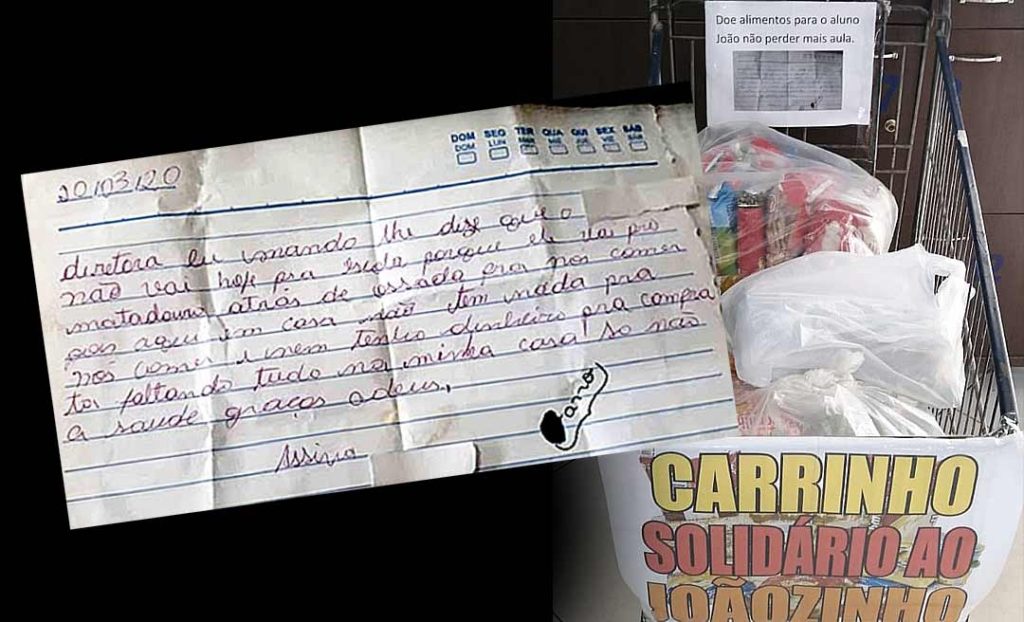 20/03/20
DOM SEG TER QUA QUI SEX SÁB
DOM LUN MAR MIE JUE VIE SÁB
diretora eu mando lhe dize que o
não vai hoje pra iscola porque ele vai pro
matadouro atrás de ossada pra nos comer
pois aqui em casa não tem nada pra
nos comer i nem tenho dinheiro pra compra
ta faltando tudo na minha casa so não
a saude graças adeus,
Assina
Doe alimentos para o aluno
João não perder mais aula.
CARRINHO
SOLIDÁRIO AO
JOÃOZINHO